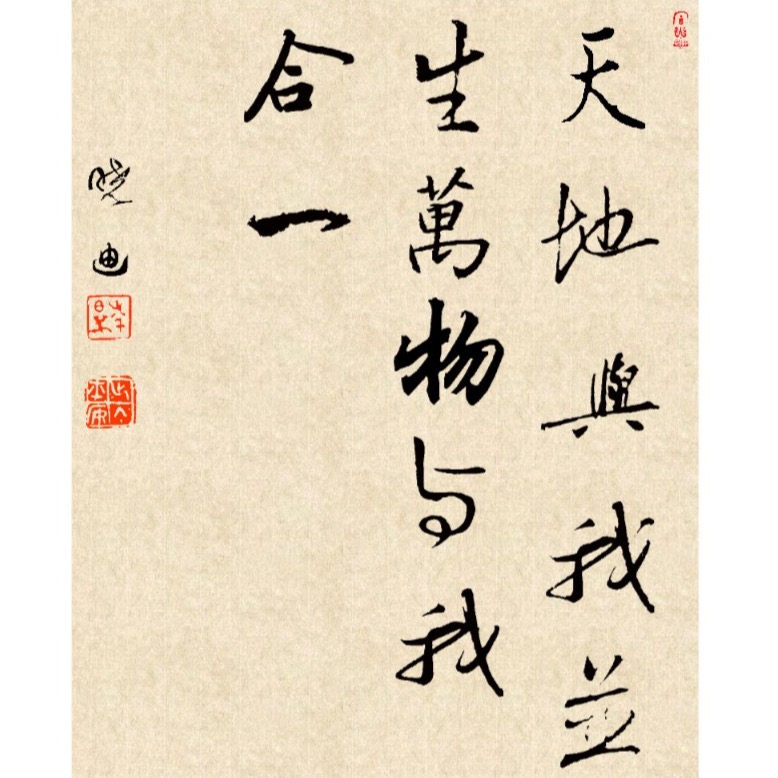 天地與我並
生萬物与我
合一
晓迪